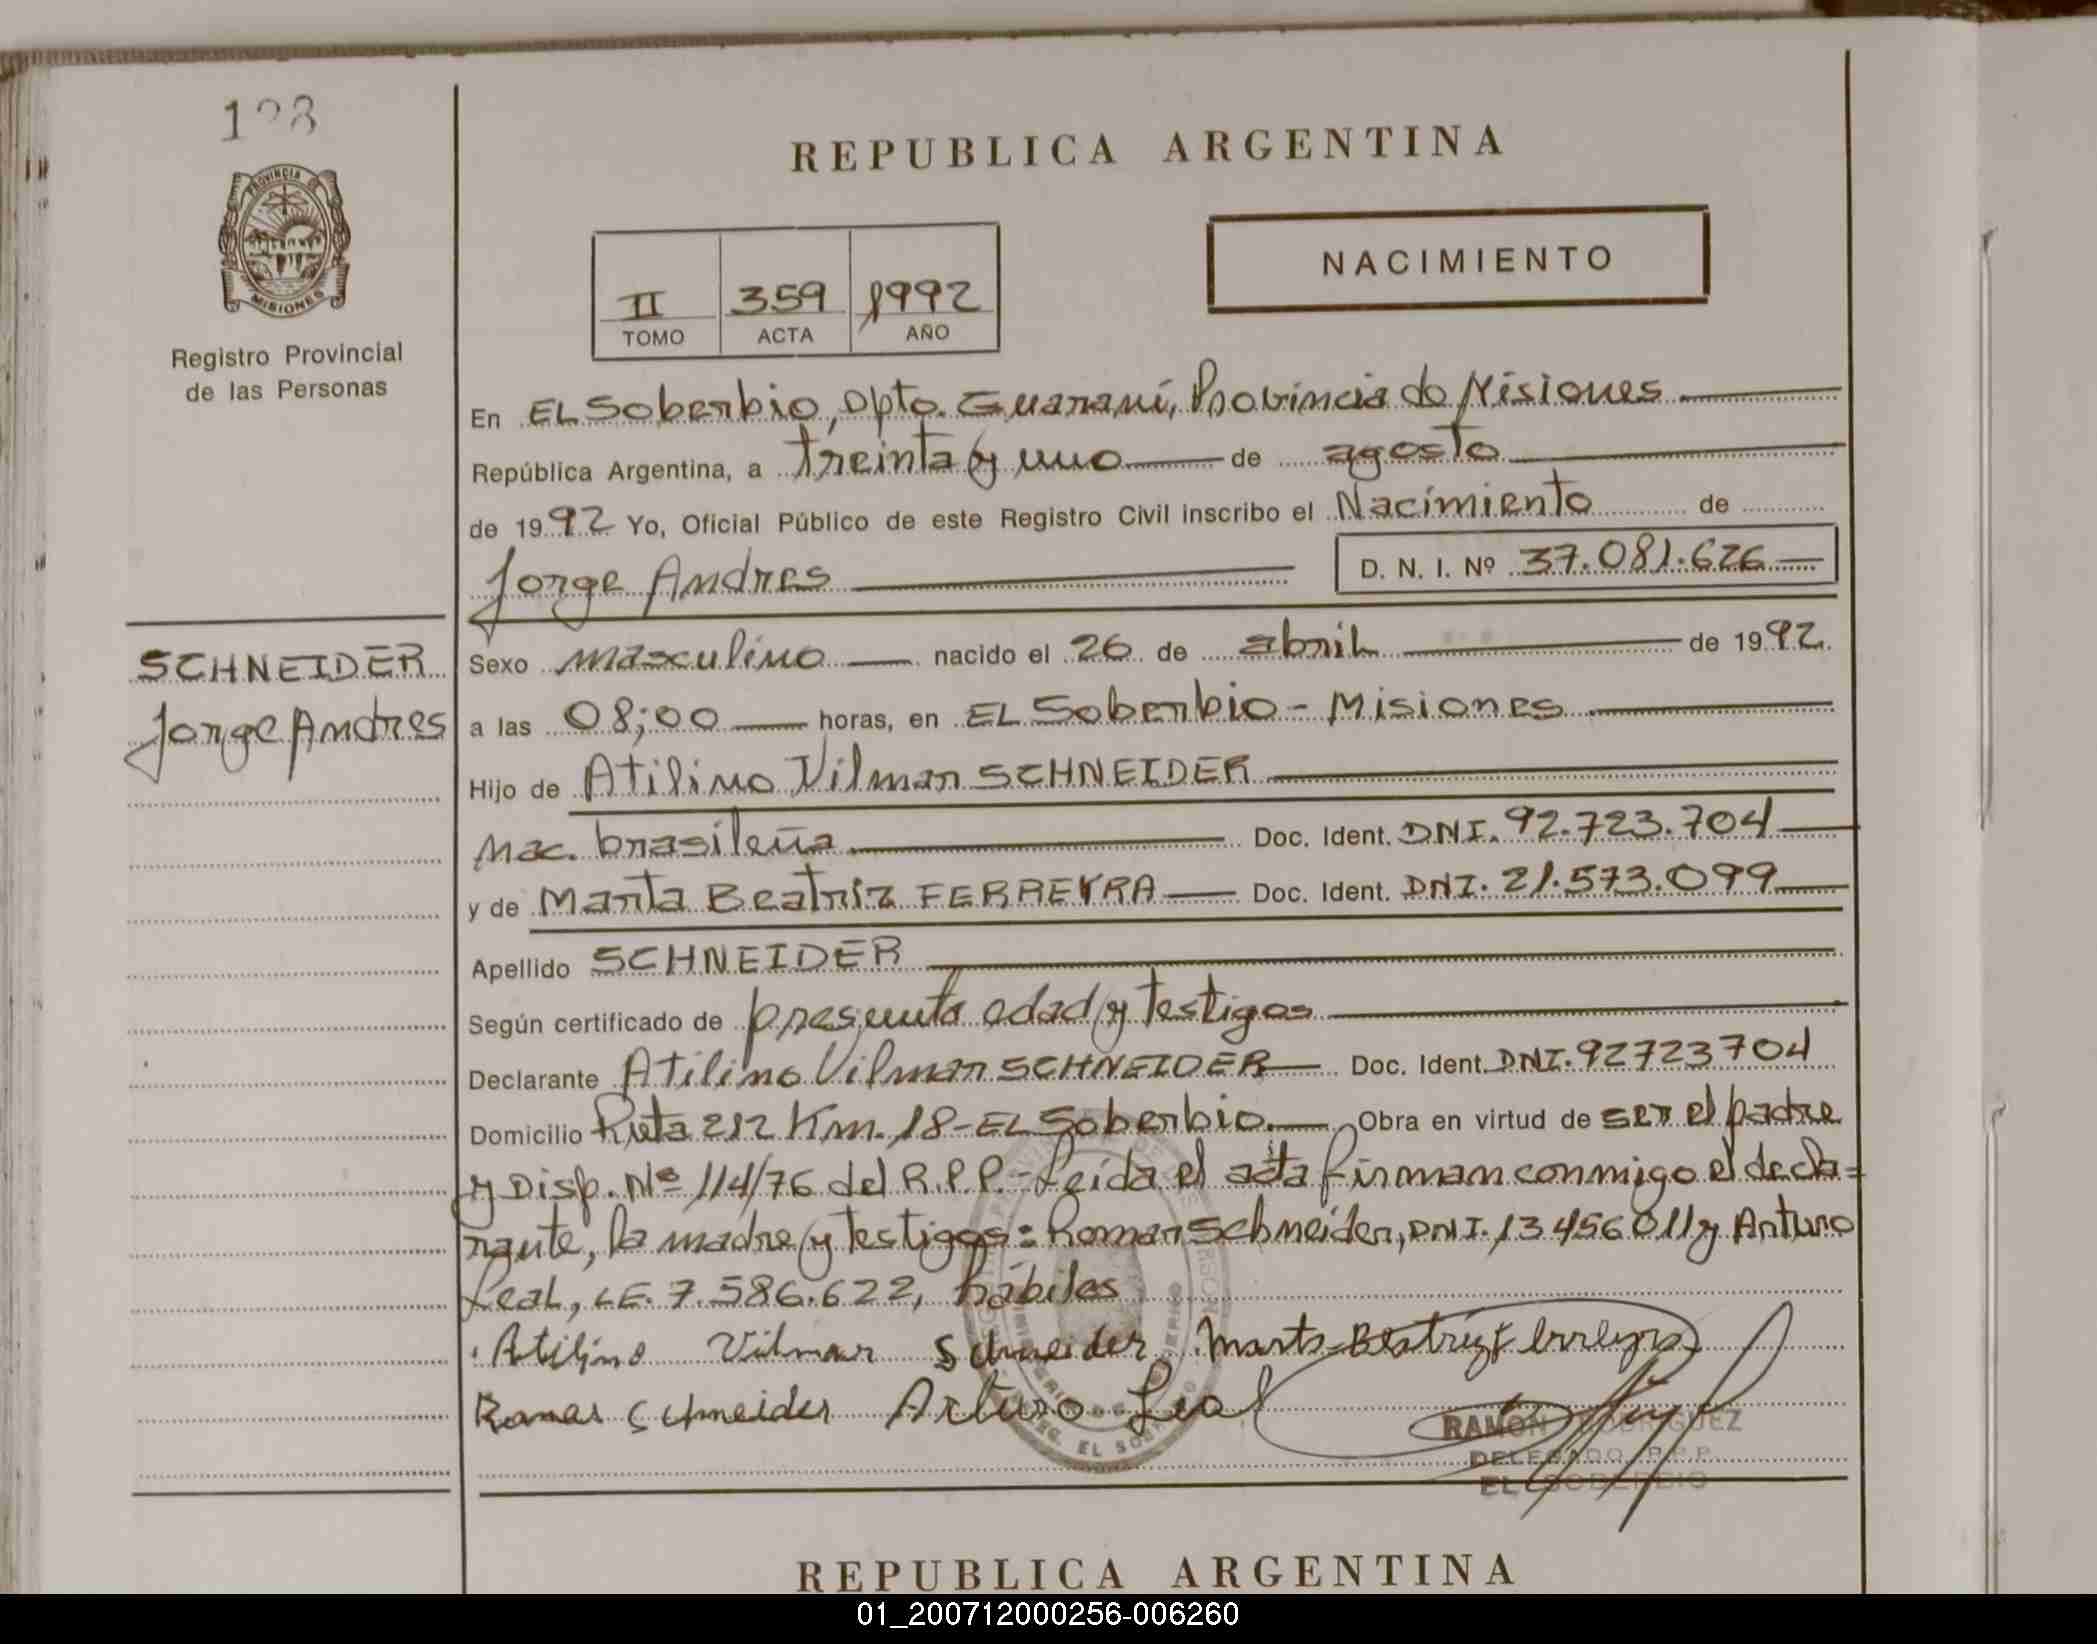 198
PROVINCIA DE
MISIONES
Registro Provincial
de las Personas
SCHNEIDER
Jorge Andres
REPUBLICA ARGENTINA
NACIMIENTO
II 359 1992
TOMO ACTA AÑO
En EL Soberbio, Dpto. Guaraní, Provincia de Misiones
República Argentina, a treinta y uno de agosto
de 1992 Yo, Oficial Público de este Registro Civil inscribo el Nacimiento de
Jorge Andres D. N. I. Nº 37.081.626
Sexo masculino nacido el 26 de abril de 1992.
a las 08;00 horas, en EL Soberbio - Misiones
Hijo de Atilino Vilmar SCHNEIDER
nac. brasileña Doc. Ident. DNI. 92.723.704
y de Marta Beatriz FERREYRA Doc. Ident. DNI. 21.573.099
Apellido SCHNEIDER
Según certificado de presunta edad y testigos
Declarante Atilino Vilmar SCHNEIDER Doc. Ident. DNI. 92723704
Domicilio Ruta 212 Km. 18 - EL Soberbio. Obra en virtud de ser el padre
y Disp. Nº 114/76 del R.P.P. - Leída el acta firman conmigo el decla=
rante, la madre y testigos: Roman Schneider, DNI. 13456011 y Arturo
Leal, LE. 7.586.622, hábiles
Atilino Vilmar Schneider Marta Beatriz Ferreyra
Roman Schneider Arturo Leal
RAMON RODRIGUEZ
DELEGADO R.P.P.
EL SOBERBIO
REPUBLICA ARGENTINA
01_200712000256-006260